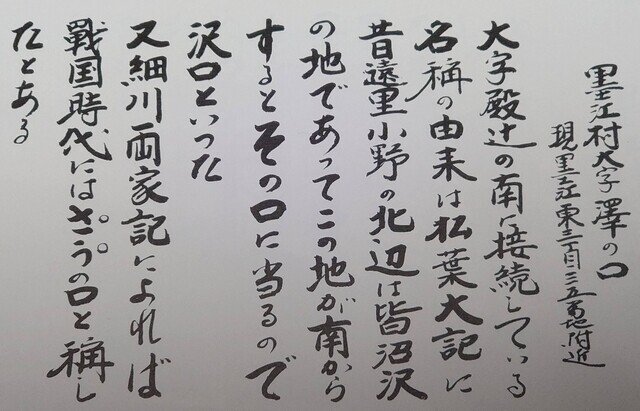 墨江村大字澤の口
現墨江東三丁目三五番地附近
大字殿辻の南に接続している
名称の由来は松葉大記に
昔遠里小野の北辺は皆沼沢
の地であってこの地が南から
するとその口に当るので
沢口といった
又細川両家記によれば
戰国時代にはさ。う。の口と稱し
たとある